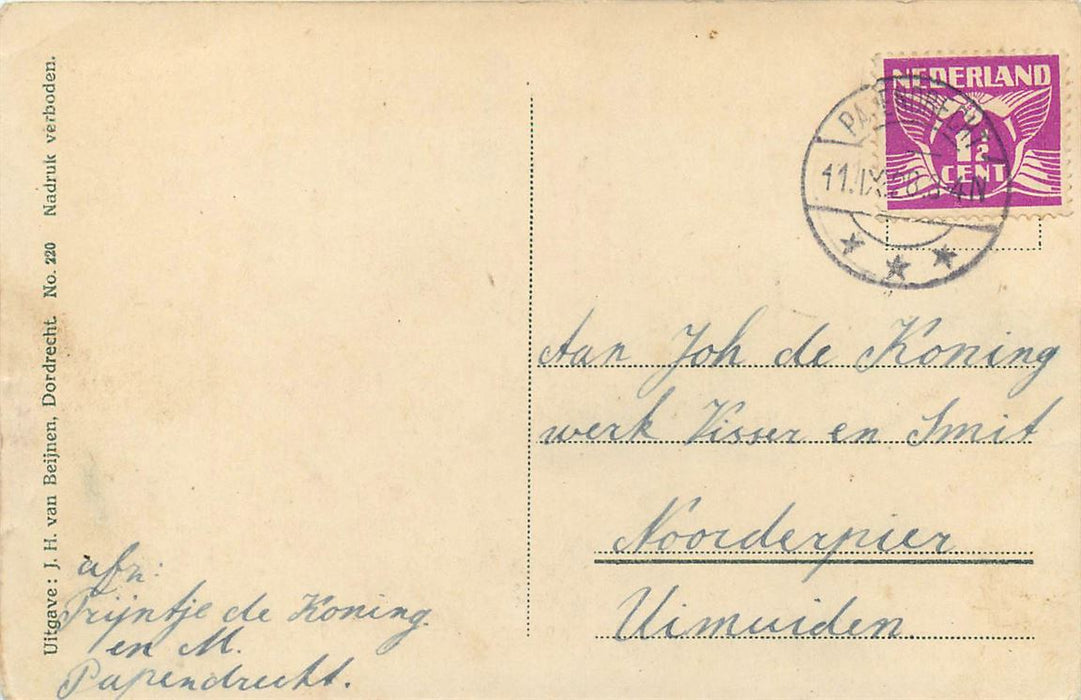 Uitgave: J. H. van Beijnen, Dordrecht. No. 220 Nadruk verboden.
NEDERLAND
1½
CENT
PAPENDRECHT
11.IX 3-4N
Aan Joh de Koning
werk Visser en Smit
Noorderpier
Uimuiden.
afz:
Trijntje de Koning
en M.
Papendrecht.